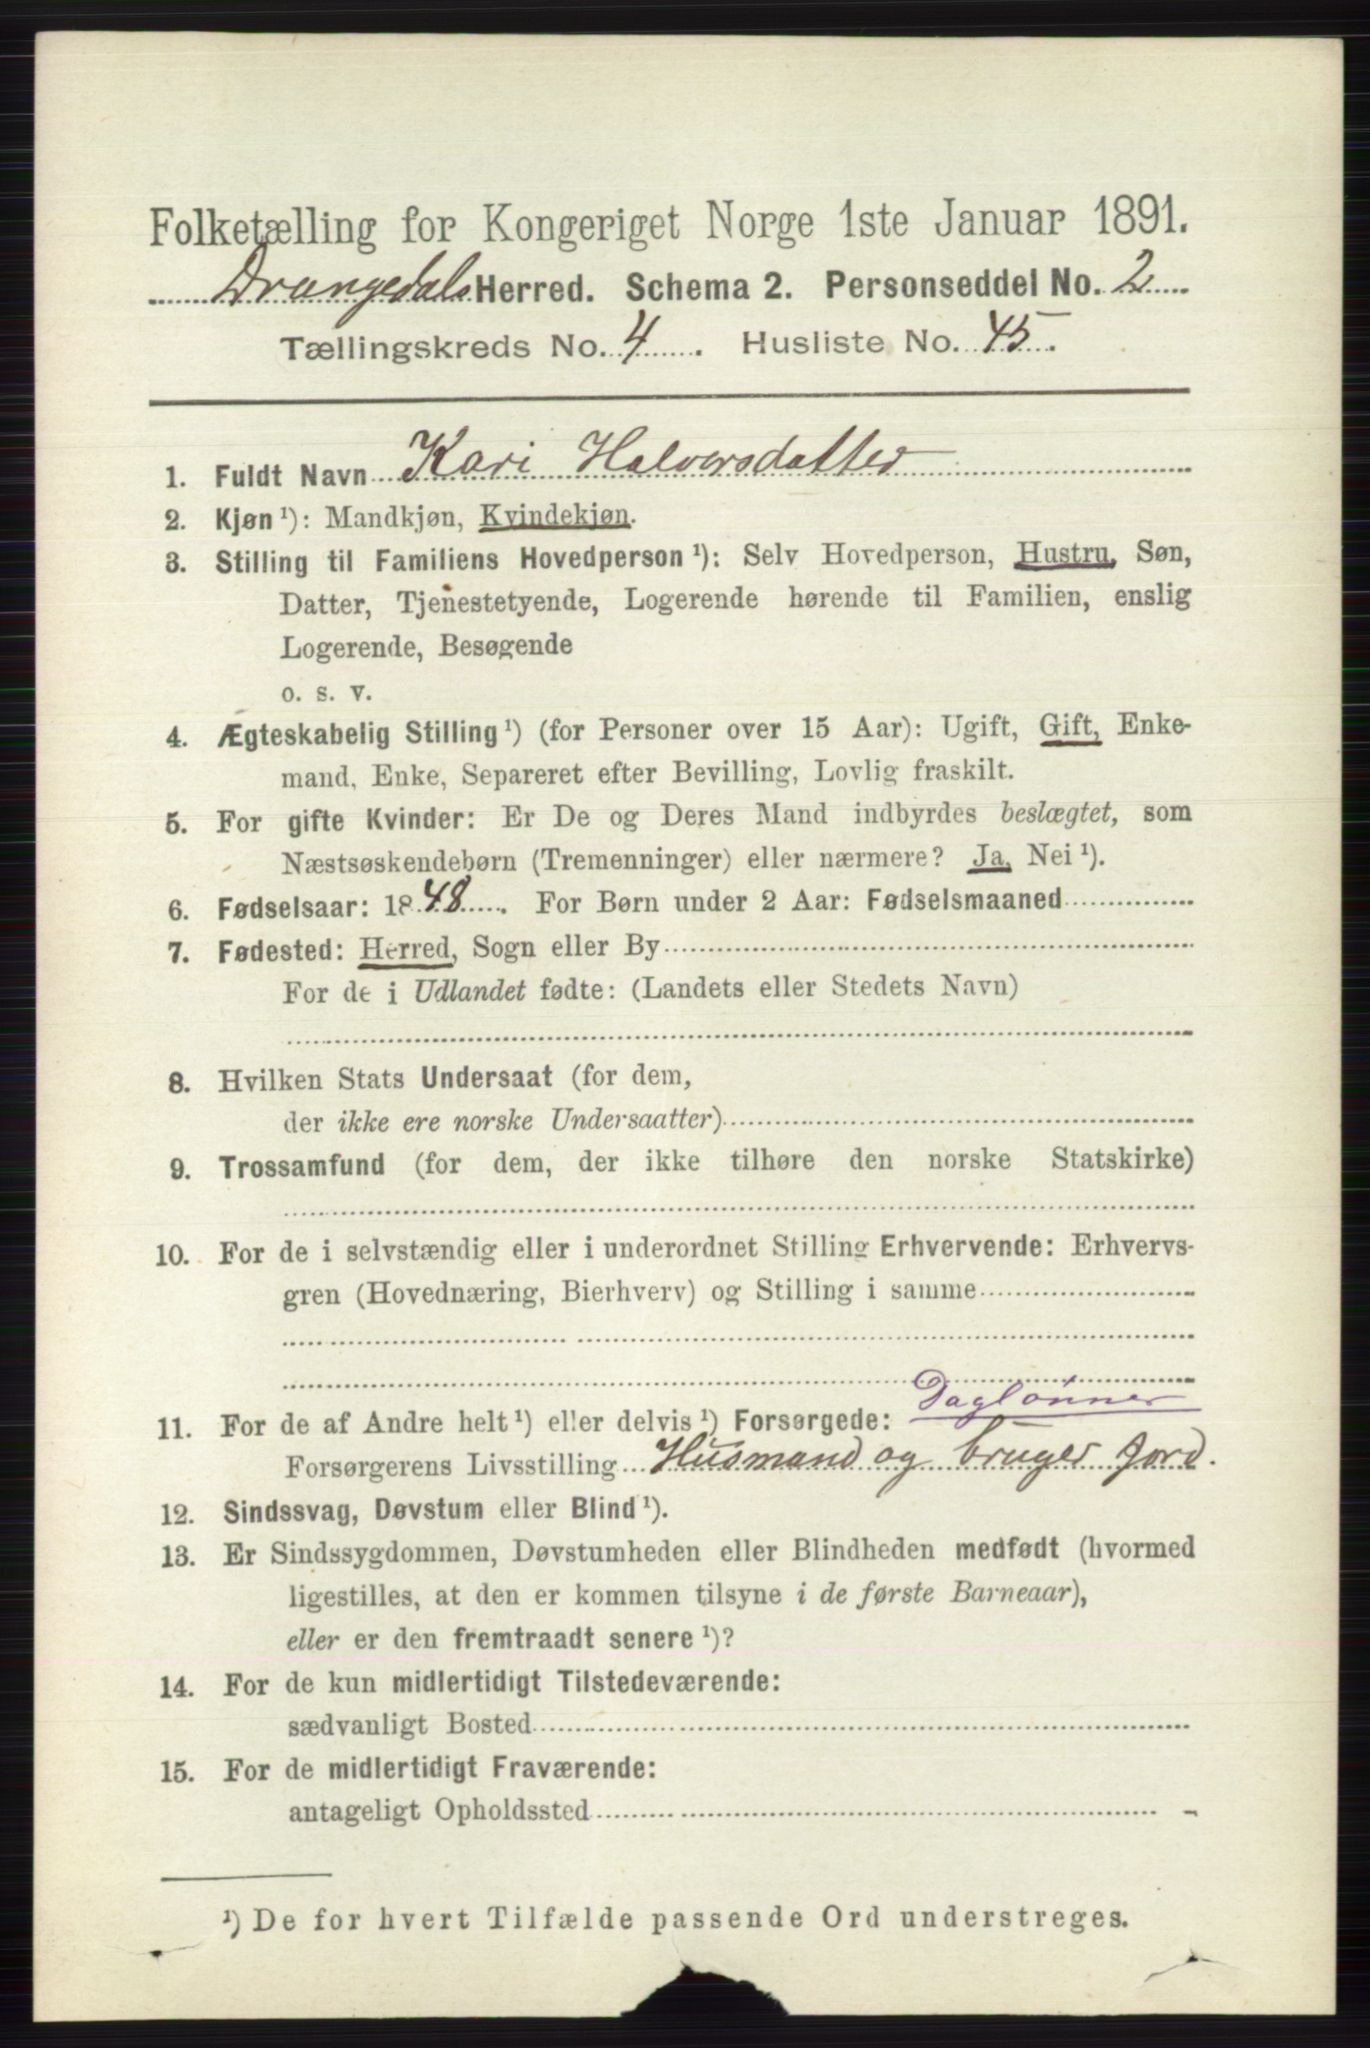 Folketælling for Kongeriget Norge 1ste Januar 1891.
Drangedals Herred. Schema 2. Personseddel No. 2
Tællingskreds No. 4. Husliste No. 45.
1. Fuldt Navn Kari Halvorsdatter
2. Kjøn¹): Mandkjøn, Kvindekjøn.
3. Stilling til Familiens Hovedperson¹): Selv Hovedperson, Hustru, Søn,
Datter, Tjenestetyende, Logerende hørende til Familien, enslig
Logerende, Besøgende
o. s. v.
4. Ægteskabelig Stilling¹) (for Personer over 15 Aar): Ugift, Gift, Enke-
mand, Enke, Separeret efter Bevilling, Lovlig fraskilt.
5. For gifte Kvinder: Er De og Deres Mand indbyrdes beslægtet, som
Næstsøskendebørn (Tremenninger) eller nærmere? Ja, Nei¹).
6. Fødselsaar: 1848. For Børn under 2 Aar: Fødselsmaaned
7. Fødested: Herred, Sogn eller By
For de i Udlandet fødte: (Landets eller Stedets Navn)
8. Hvilken Stats Undersaat (for dem,
der ikke ere norske Undersaatter)
9. Trossamfund (for dem, der ikke tilhøre den norske Statskirke)
10. For de i selvstændig eller i underordnet Stilling Erhvervende: Erhvervs-
gren (Hovednæring, Bierhverv) og Stilling i samme
Daglønner
11. For de af Andre helt¹) eller delvis¹) Forsørgede:
Forsørgerens Livsstilling Husmand og bruger Jord.
12. Sindssvag, Døvstum eller Blind¹).
13. Er Sindssygdommen, Døvstumheden eller Blindheden medfødt (hvormed
ligestilles, at den er kommen tilsyne i de første Barneaar),
eller er den fremtraadt senere¹)?
14. For de kun midlertidigt Tilstedeværende:
sædvanligt Bosted
15. For de midlertidigt Fraværende:
antageligt Opholdssted
¹) De for hvert Tilfælde passende Ord understreges.